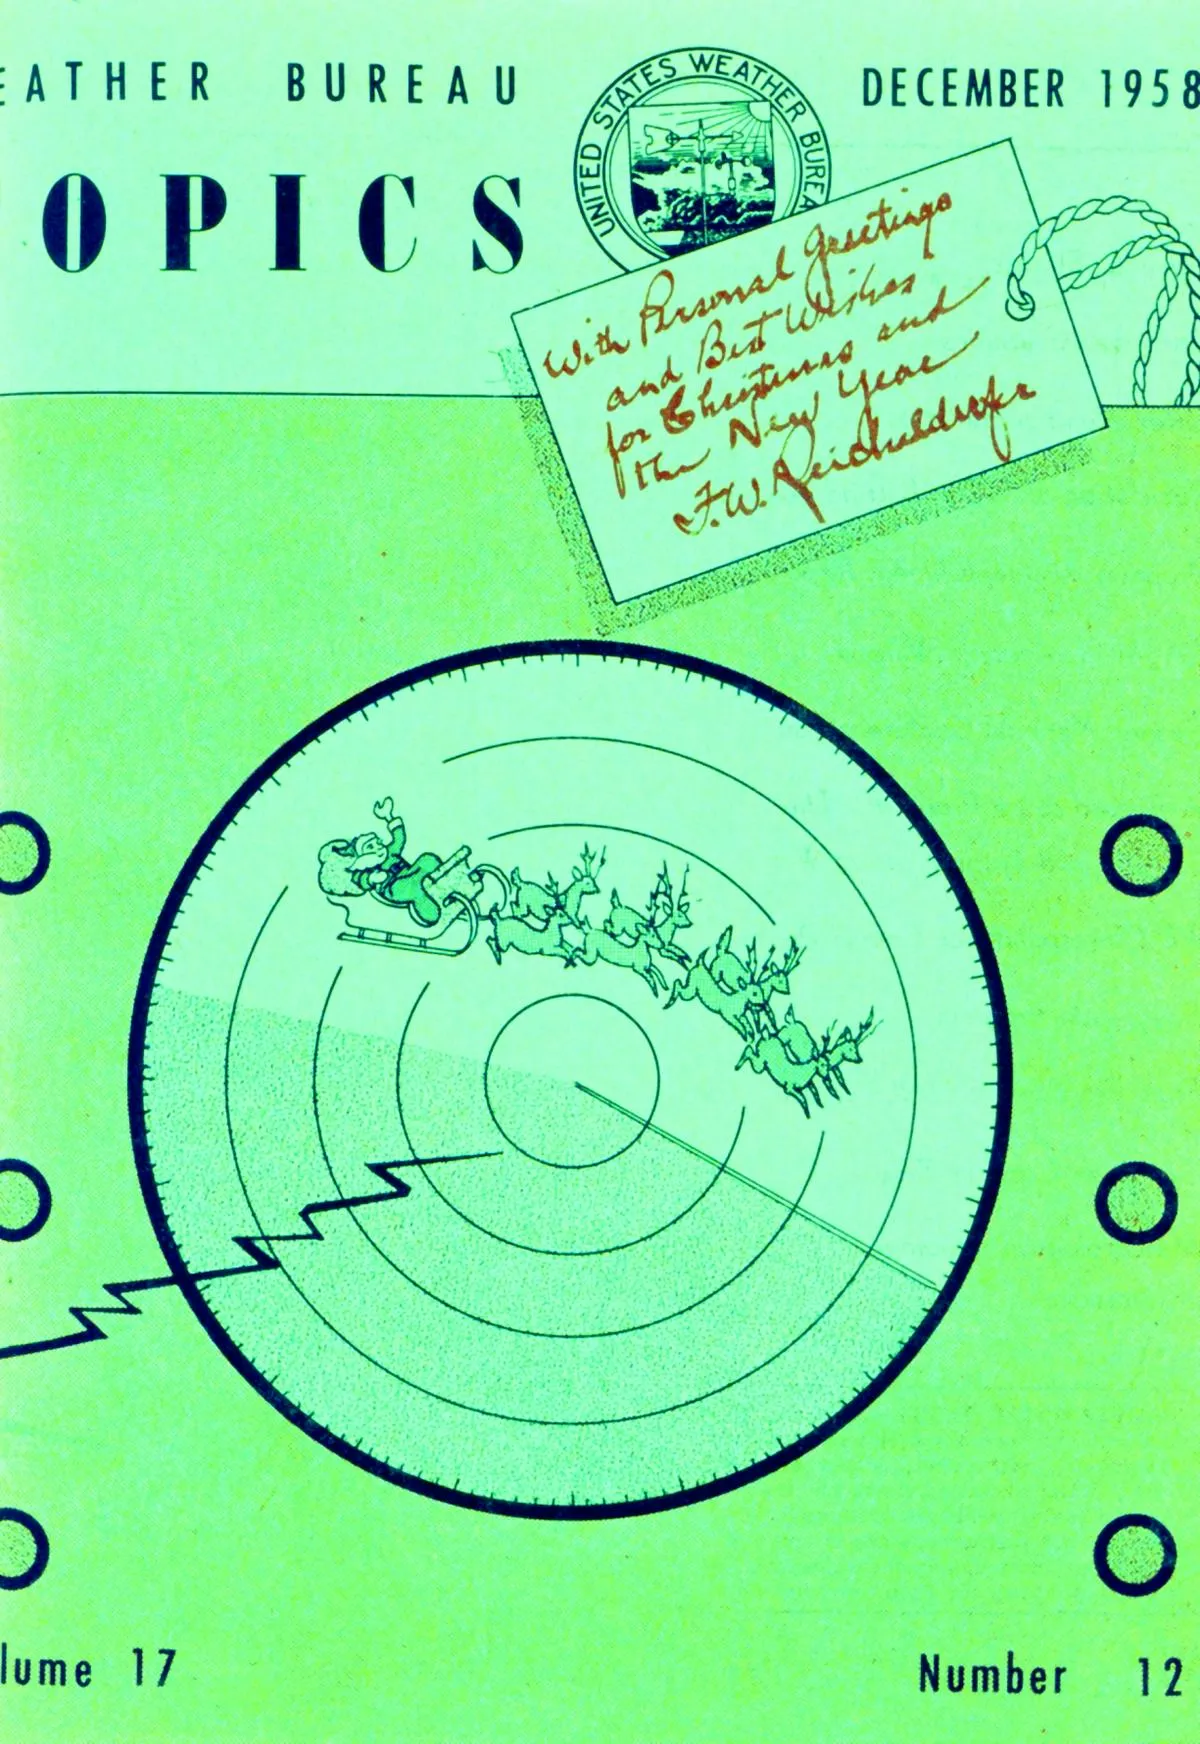 EATHER BUREAU
DECEMBER 1958
OPICS
UNITED STATES WEATHER BUREA
With Personal Greetings
and Best Wishes
for Christmas and
the New Year
F.W. Reichelderfer
lume 17
Number 12